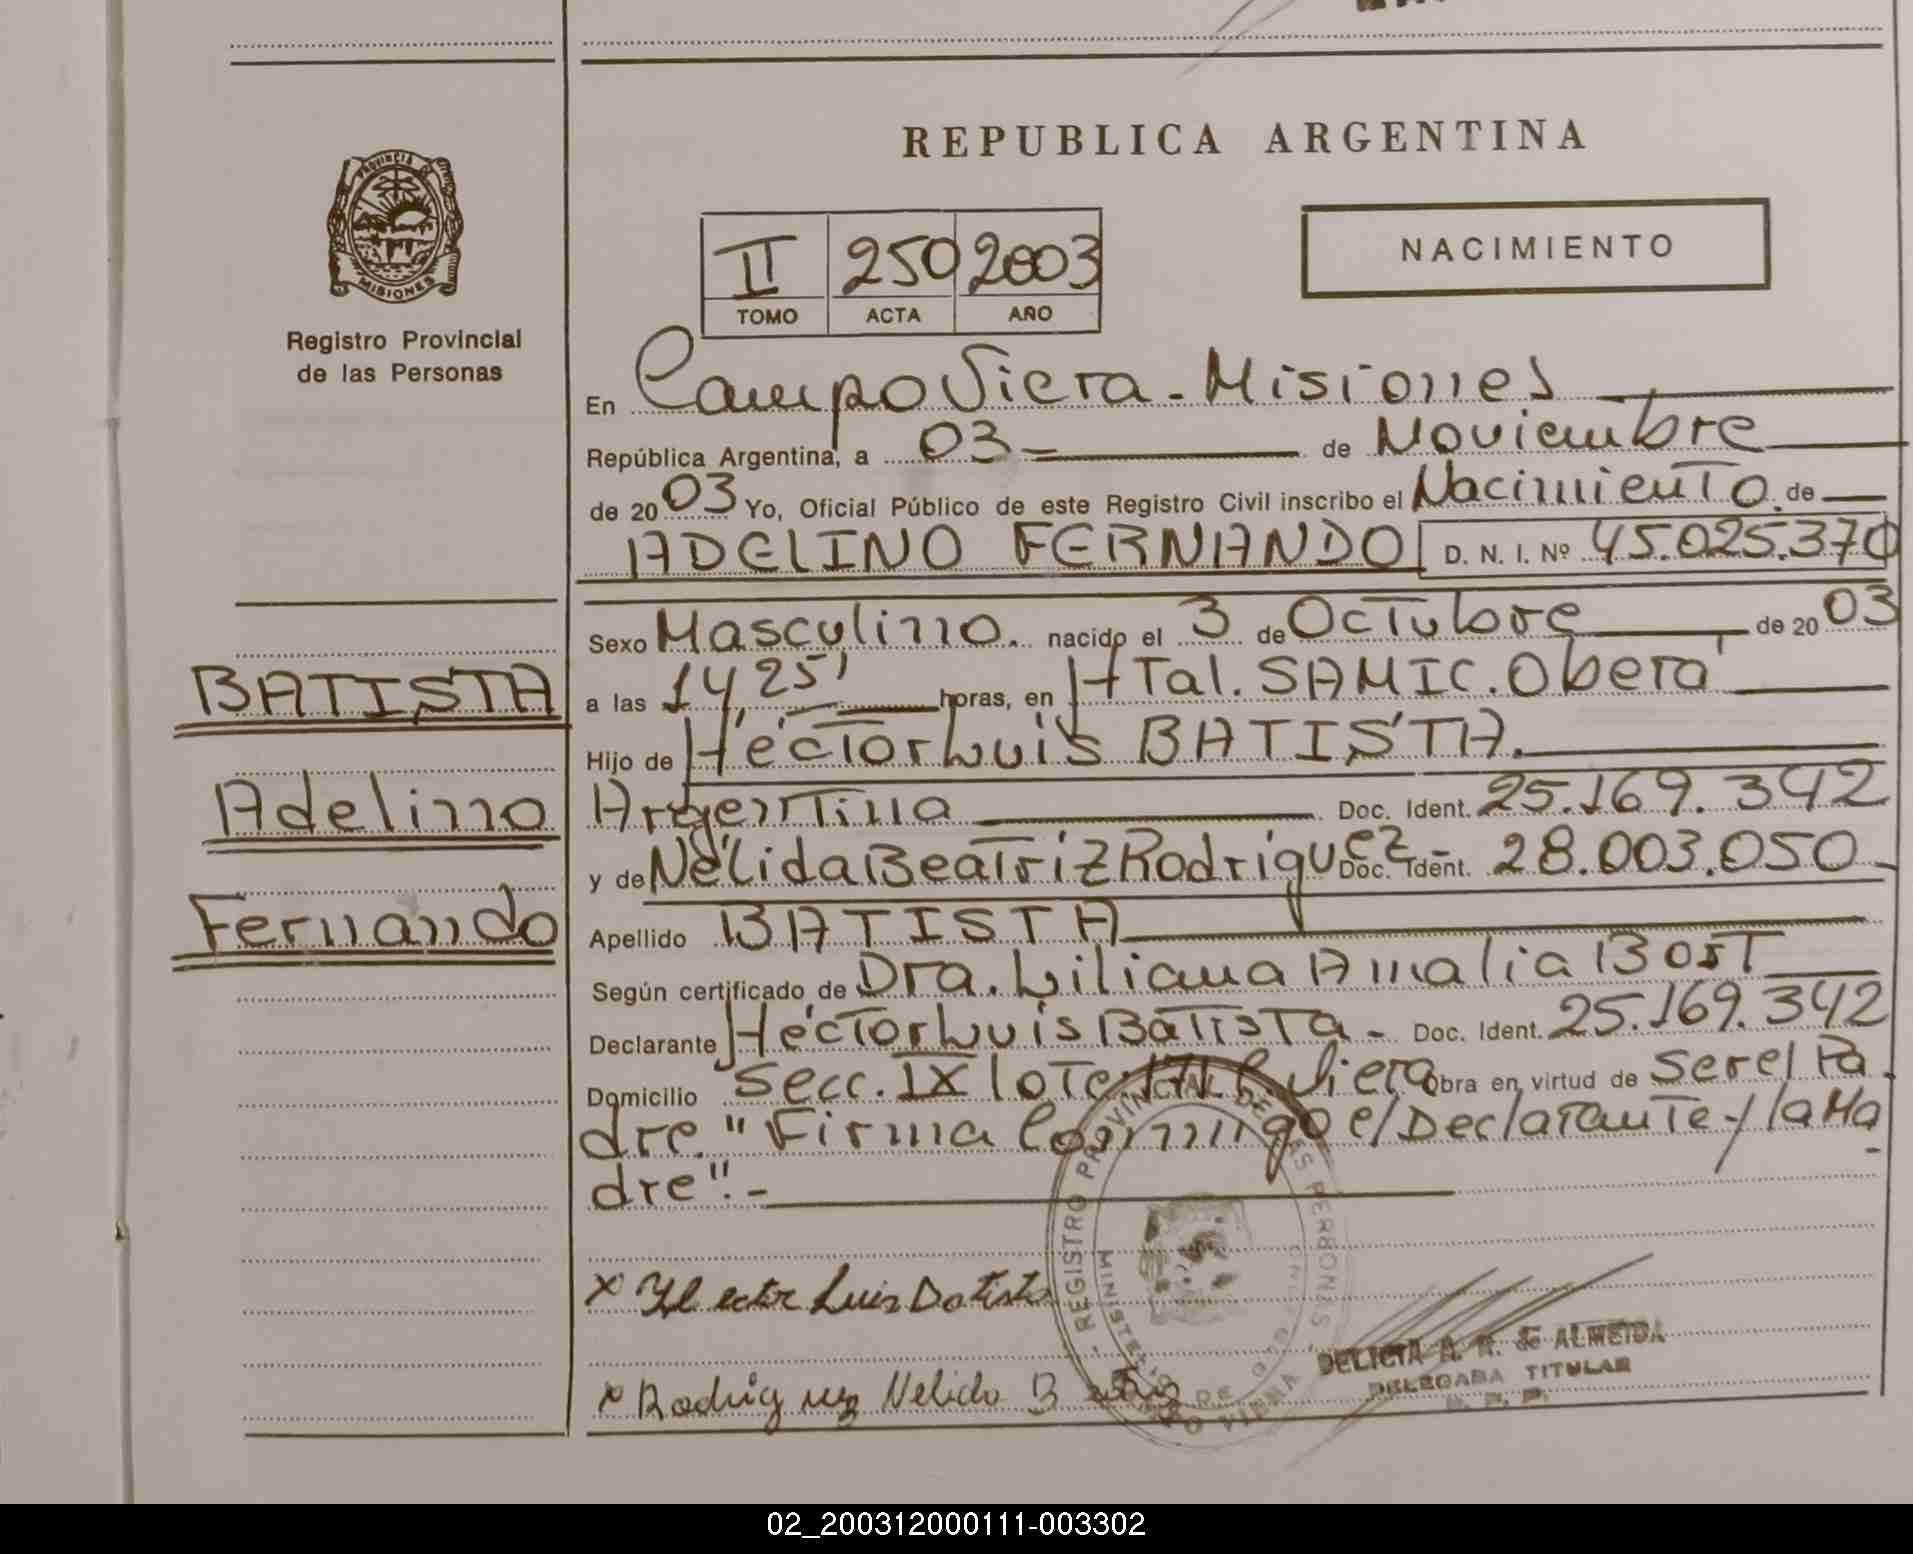 REPUBLICA ARGENTINA
PROVINCIA DE
MISIONES
Registro Provincial
de las Personas
II 250 2003
TOMO ACTA AÑO
NACIMIENTO
En Campo Viera - Misiones
República Argentina, a 03 = de Noviembre
de 2003 Yo, Oficial Público de este Registro Civil inscribo el Nacimiento de
ADELINO FERNANDO D. N. I. Nº 45.025.370
Sexo Masculino. nacido el 3 de Octubre de 2003
a las 14,25' horas, en HTal. SAMIC. Oberá
Hijo de Héctor Luis BATISTA.
Argentina Doc. Ident. 25.169.342
y de Nélida Beatriz Rodriguez - Doc. Ident. 28.003.050 -
Apellido BATISTA
Según certificado de Dra. Liliana Amalia BOST
Declarante Héctor Luis Batista - Doc. Ident. 25.169.342
Domicilio Secc. IX lote Viera Obra en virtud de Ser el Pa
dre. "Firma Conmigo el Declarante y la Ma
dre". -
BATISTA
Adelino
Fernando
x Hector Luis Batista
x Rodriguez Nelida B
REGISTRO PROVINCIAL DE LAS PERSONAS
DELICIA A. R. de ALMEIDA
DELEGADA TITULAR
02_200312000111-003302